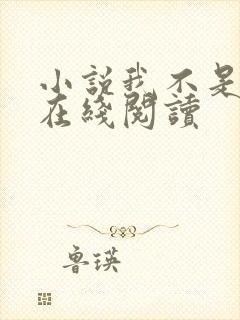 小说我不是
在綫閱讀
鲁瑛